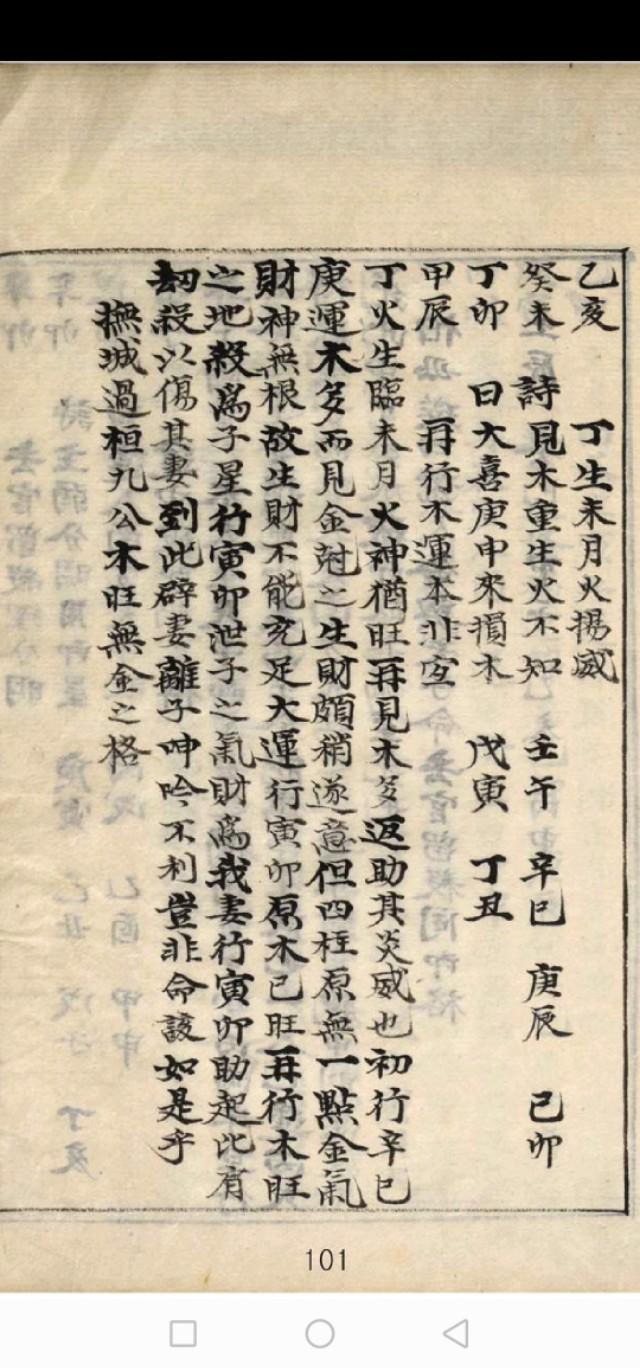 乙亥 丁生未月火揚威
癸未 詩 見木重生火不知 壬午 辛巳 庚辰 己卯
丁卯 曰 大喜庚申來損木 戊寅 丁丑
甲辰 再行木運本非宜
丁火生臨未月火神猶旺再見木多返助其炎威也初行辛巳
庚運木多而見金尅之生財頗稍遂意但四柱原無一點金氣
財神無根故生財不能充足大運行寅卯原木已旺再行木旺
之地殺為子星行寅卯泄子之氣財為我妻行寅卯助起比有
刼殺以傷其妻到此辟妻離子呻吟不利豈非命該如是乎
撫城過桓九公木旺無金之格
101